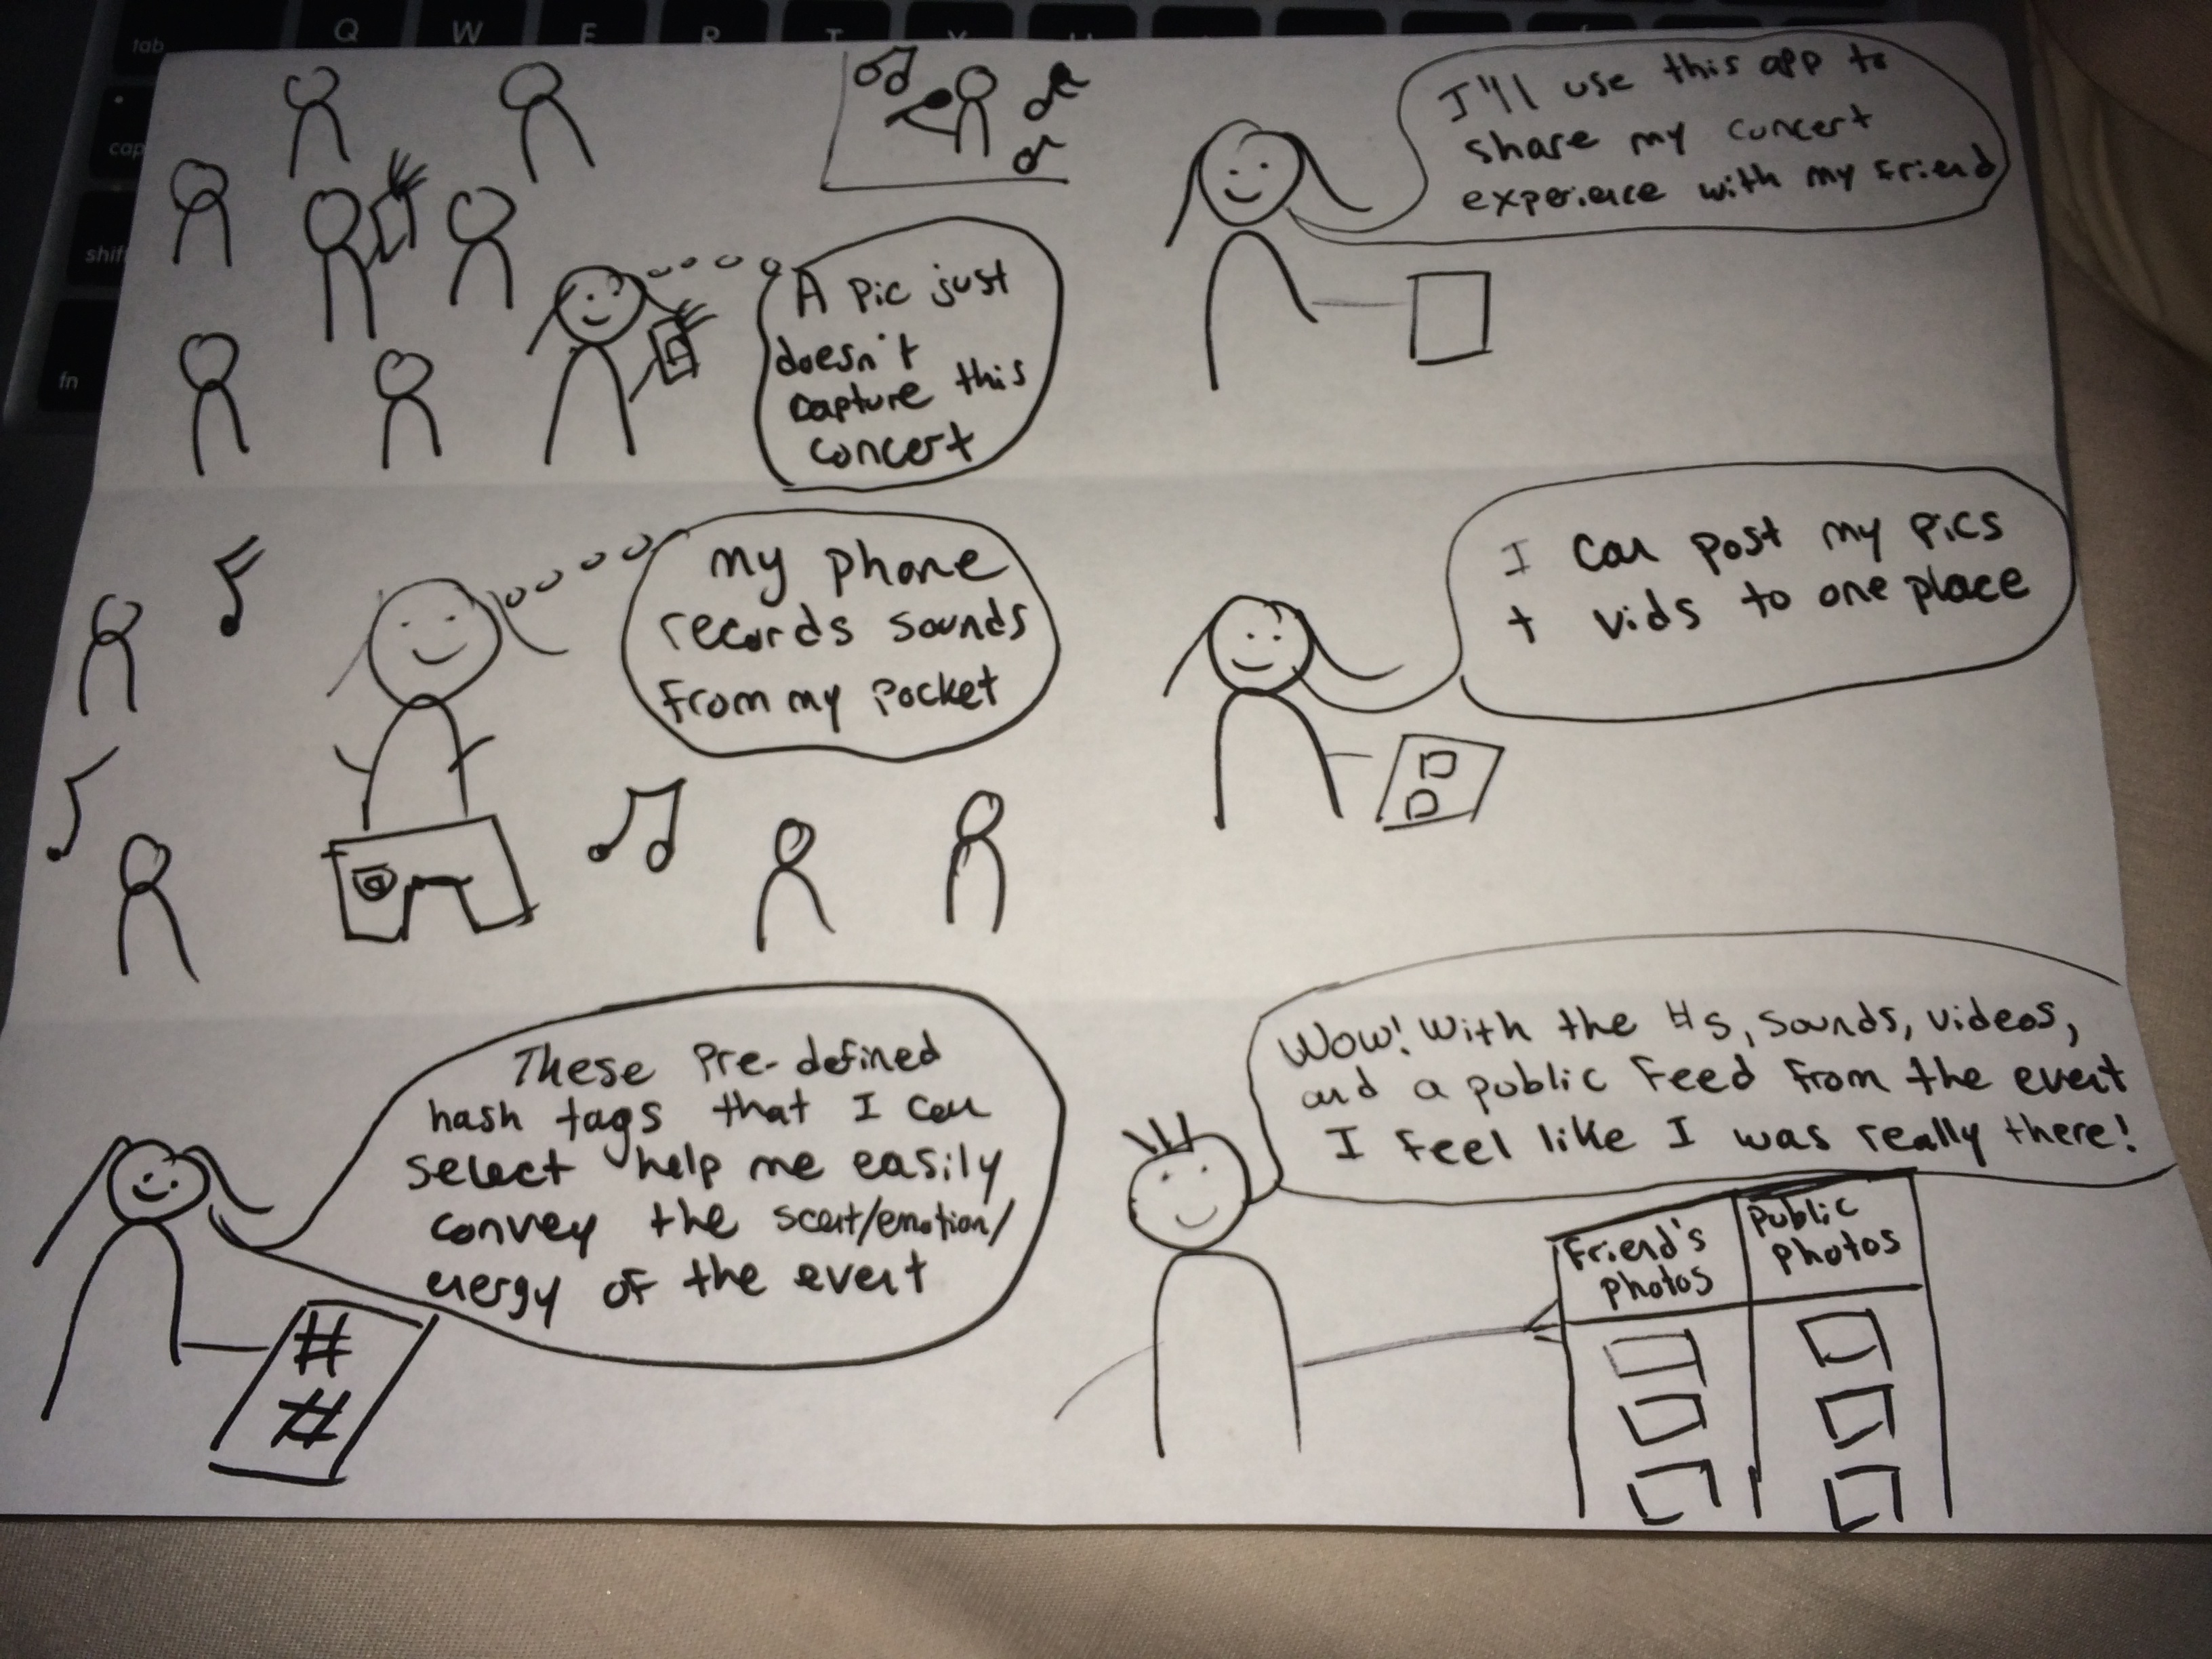 tab
Q
W
E
R
T
Y
U
cap
shift
fn
A pic just
doesn't
capture this
concert
I'll use this app to
share my concert
experience with my friend
My phone
records sounds
from my pocket
I can post my pics
+ vids to one place
These pre-defined
hash tags that I can
select help me easily
convey the scent/emotion/
energy of the event
#
#
Wow! With the #s, sounds, videos,
and a public feed from the event
I feel like I was really there!
Friend's
photos
Public
photos